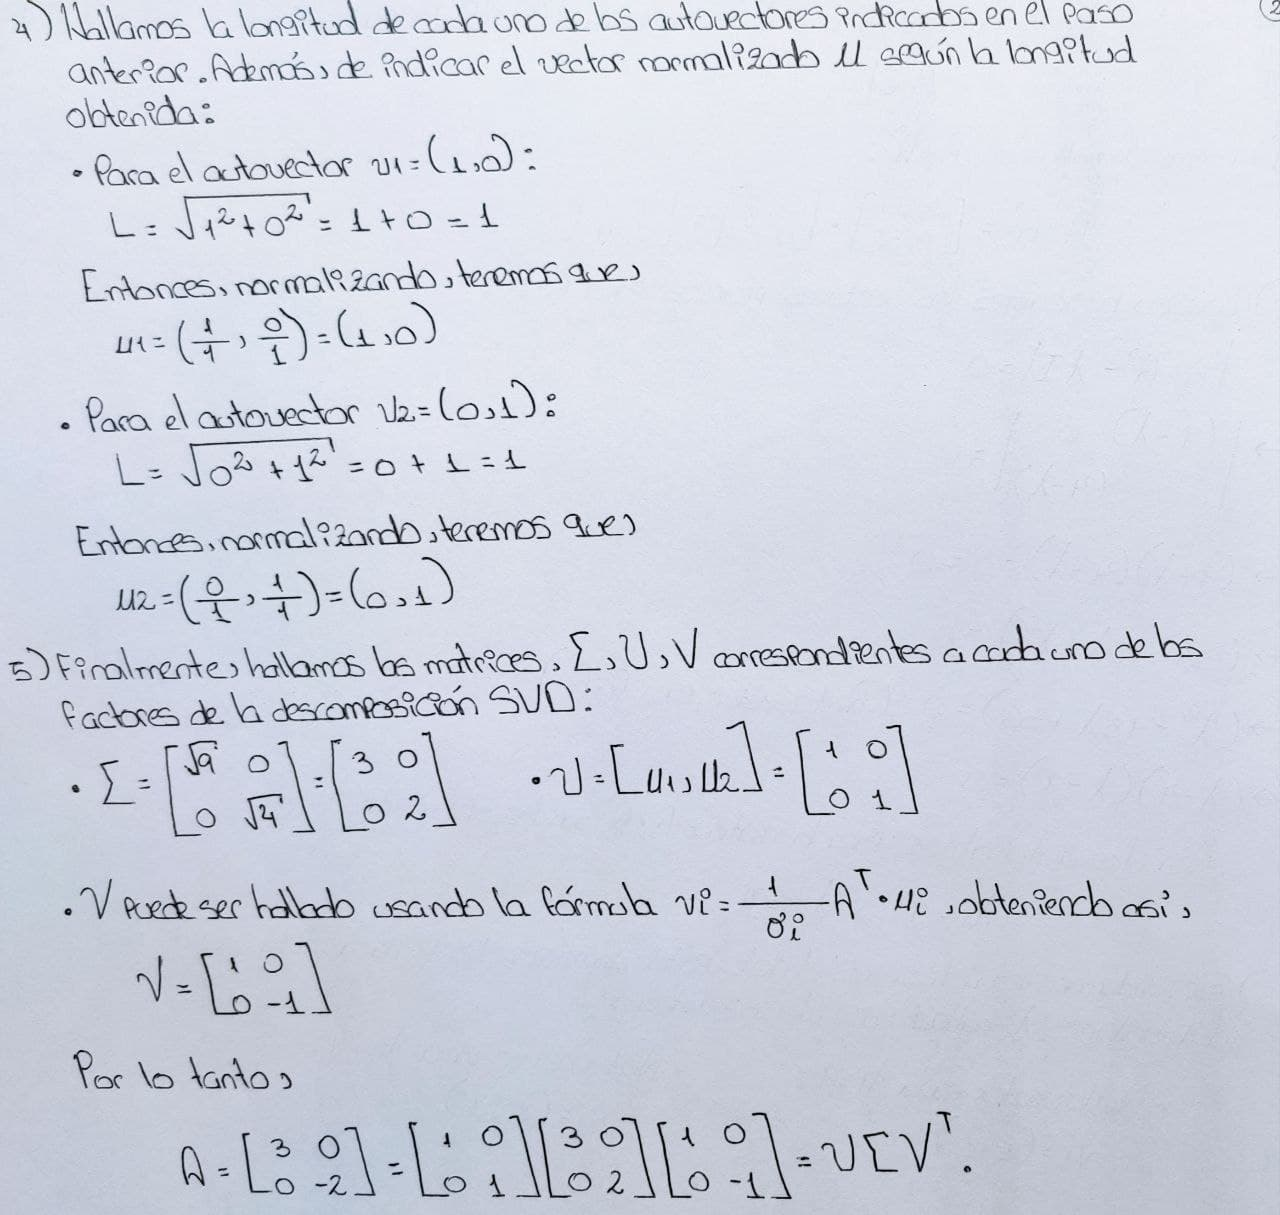 4) Hallamos la longitud de cada uno de los autovectores indicados en el paso
anterior. Además, de indicar el vector normalizado u según la longitud
obtenida:
• Para el autovector v1 = (1,0):
L = √(1² + 0²) = 1 + 0 = 1
Entonces, normalizando, teremos que,
u1 = (1/1, 0/1) = (1,0)
• Para el autovector v2 = (0,1):
L = √(0² + 1²) = 0 + 1 = 1
Entonces, normalizando, teremos que,
u2 = (0/1, 1/1) = (0,1)
5) Finalmente, hallamos las matrices, Σ, U, V correspondientes a cada uno de los
factores de la descomposición SVD:
• Σ = [√9 0; 0 √4] = [3 0; 0 2] • U = [u1, u2] = [1 0; 0 1]
• V puede ser hallado usando la fórmula vi = 1/σi A^T · ui, obteniendo así,
V = [1 0; 0 -1]
Por lo tanto,
A = [3 0; 0 -2] = [1 0; 0 1][3 0; 0 2][1 0; 0 -1] = UΣV^T.